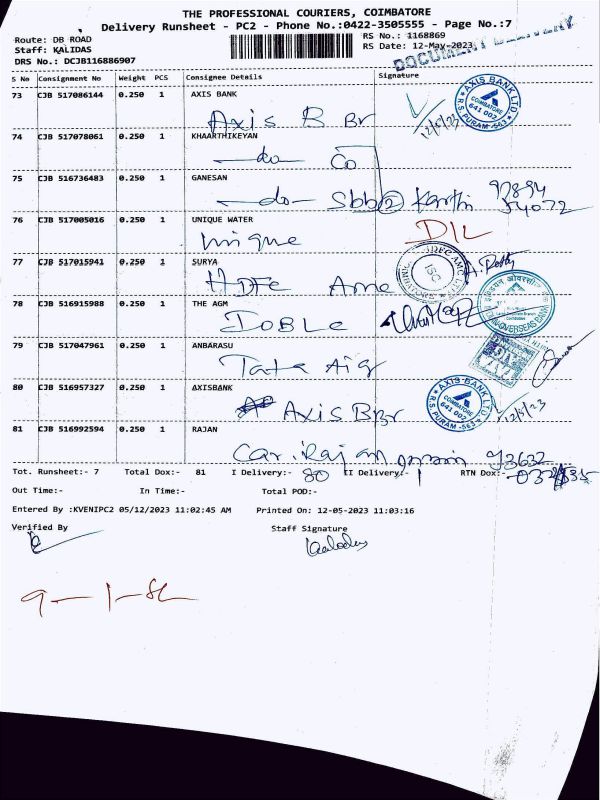 THE PROFESSIONAL COURIERS, COIMBATORE
Delivery Runsheet - PC2 - Phone No.:0422-3505555 - Page No.:7
Route: DB ROAD
RS No.: 1168869
Staff: KALIDAS
RS Date: 12-May-2023
DRS No.: DCJB116886907
DOCUMENT DELIVERY
S No Consignment No Weight PCS Consignee Details Signature
73 CJB 517086144 0.250 1 AXIS BANK
Axis B Br
12/5/23
AXIS BANK LTD
COIMBATORE
641 002
R.S PURAM-563
74 CJB 517078061 0.250 1 KHAARTHIKEYAN
-do-
75 CJB 516736483 0.250 1 GANESAN
-do- Sbb 2 Karthi
76 CJB 517005016 0.250 1 UNIQUE WATER
Unique
77 CJB 517015941 0.250 1 SURYA
HDFC Amc
78 CJB 516915988 0.250 1 THE AGM
IOBLC
79 CJB 517047961 0.250 1 ANBARASU
Tata Aig
80 CJB 516957327 0.250 1 AXISBANK
Axis B Br
12/5/23
AXIS BANK LTD
COIMBATORE
641 002
R.S PURAM-563
81 CJB 516992594 0.250 1 RAJAN
93632
Tot. Runsheet:- 7 Total Dox:- 81 I Delivery:- 80 II Delivery:- 1 RTN Dox:-
Out Time:- In Time:- Total POD:-
Entered By :KVENIPC2 05/12/2023 11:02:45 AM Printed On: 12-05-2023 11:03:16
Verified By Staff Signature